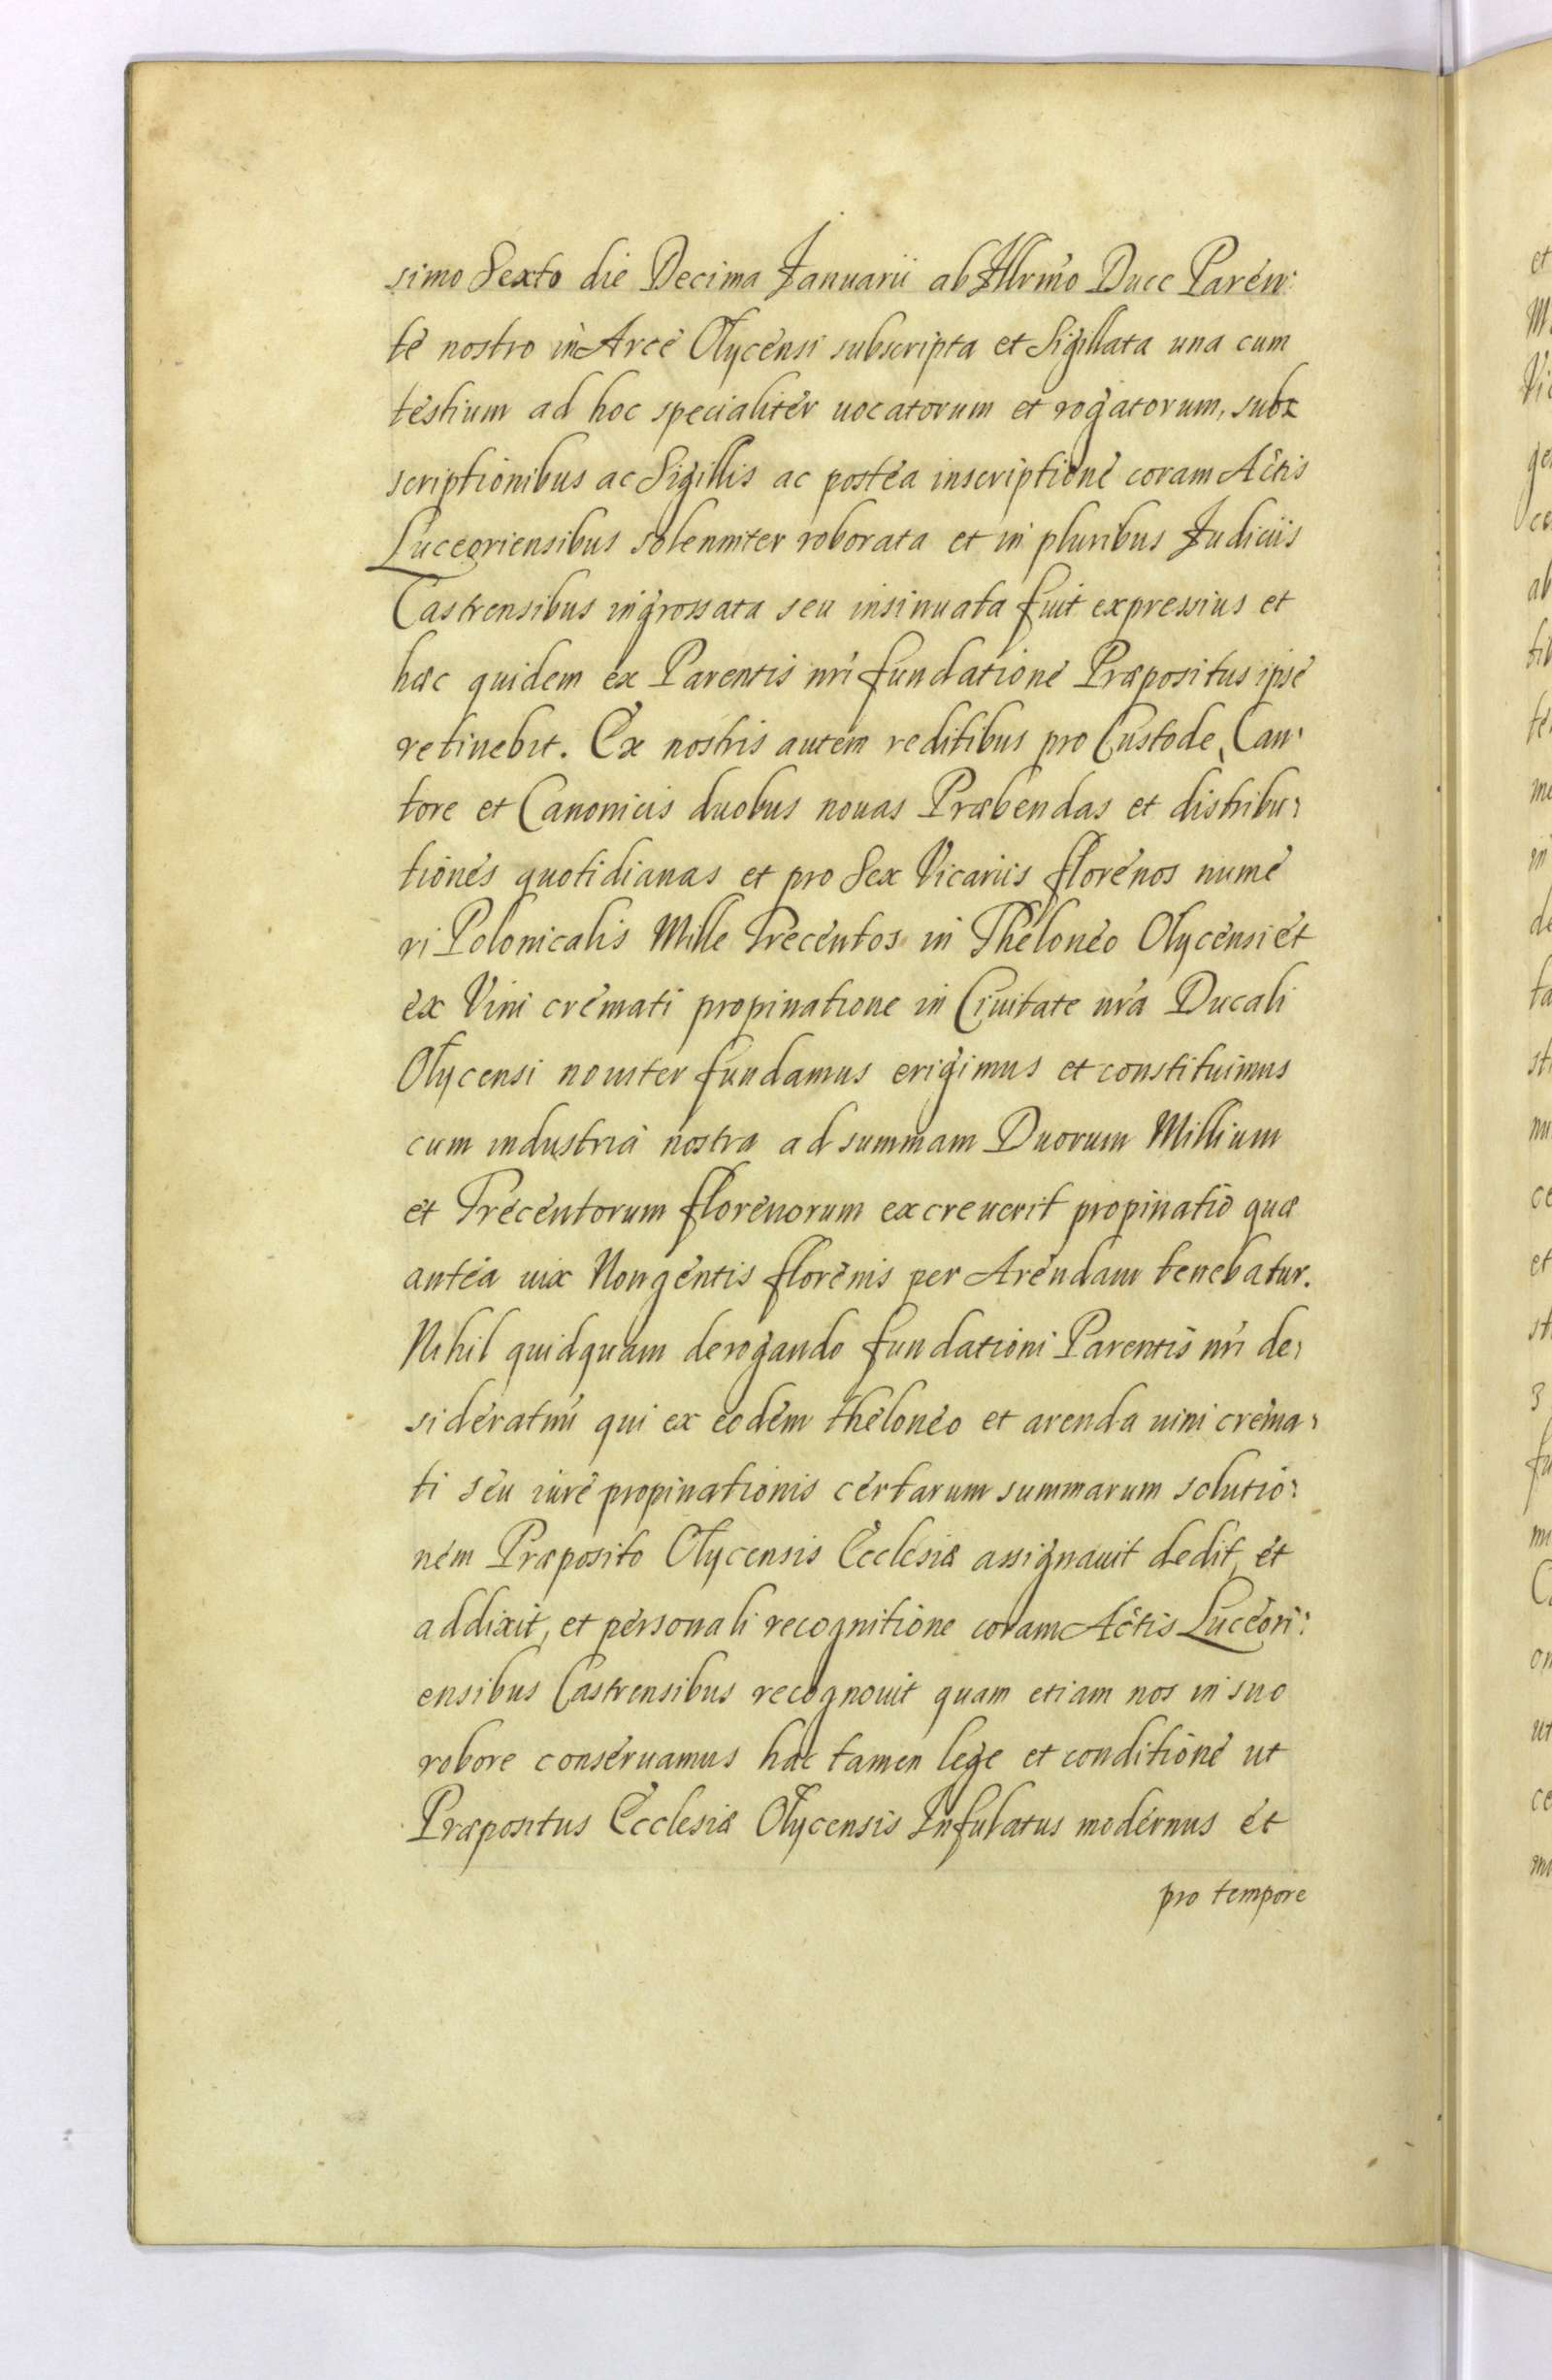 simo Sexto die Decima Januarii ab Illrmo Duce Paren:
te nostro in Arce Olycensi subscripta et Sigillata una cum
testium ad hoc specialiter uocatorum et rogatorum, sub:
scriptionibus ac Sigillis ac postea inscriptione coram Actis
Luceoriensibus solenniter roborata et in pluribus Judiciis
Castrensibus ingrossata seu insinuata fuit expressius et
hæc quidem ex Parentis nri fundatione Præpositus ipse
retinebit. Ex nostris autem reditibus pro Custode, Can:
tore et Canonicis duobus nouas Præbendas et distribu:
tiones quotidianas et pro Sex Vicariis florenos nume
ri Polonicalis Mille Trecentos in Theloneo Olycensi et
ex Vini cremati propinatione in Ciuitate nra Ducali
Olycensi nouiter fundamus erigimus et constituimus
cum industria nostra ad summam Duorum Millium
et Trecentorum florenorum excreuerit propinatio quæ
antea uix Nongentis florenis per Arendam tenebatur.
Nihil quidquam derogando fundationi Parentis nri de:
sideratmi qui ex eodem theloneo et arenda uini crema:
ti seu iure propinationis certarum summarum solutio:
nem Præposito Olycensis Ecclesiæ assignauit dedit, et
addixit, et personali recognitione coram Actis Luceori:
ensibus Castrensibus recognouit quam etiam nos in suo
robore conseruamus hac tamen lege et conditione ut
Præpositus Ecclesiæ Olycensis Infulatus modernus et
pro tempore